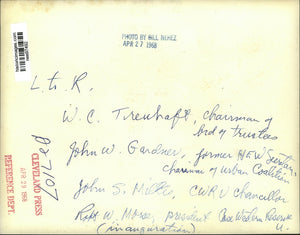 PHOTO BY BILL NEHEZ
APR 27 1968
L to R.
W. C. Treuhaft, chairman of
brd of trustees
John W. Gardner, former HEW
chairman of Urban Coalition
John S. Millis, CWRU Chancellor
Robt W. Morse, president Case Western Reserve
U.
(inauguration)
CLEVELAND PRESS
APR 29 1968
REFERENCE DEPT.